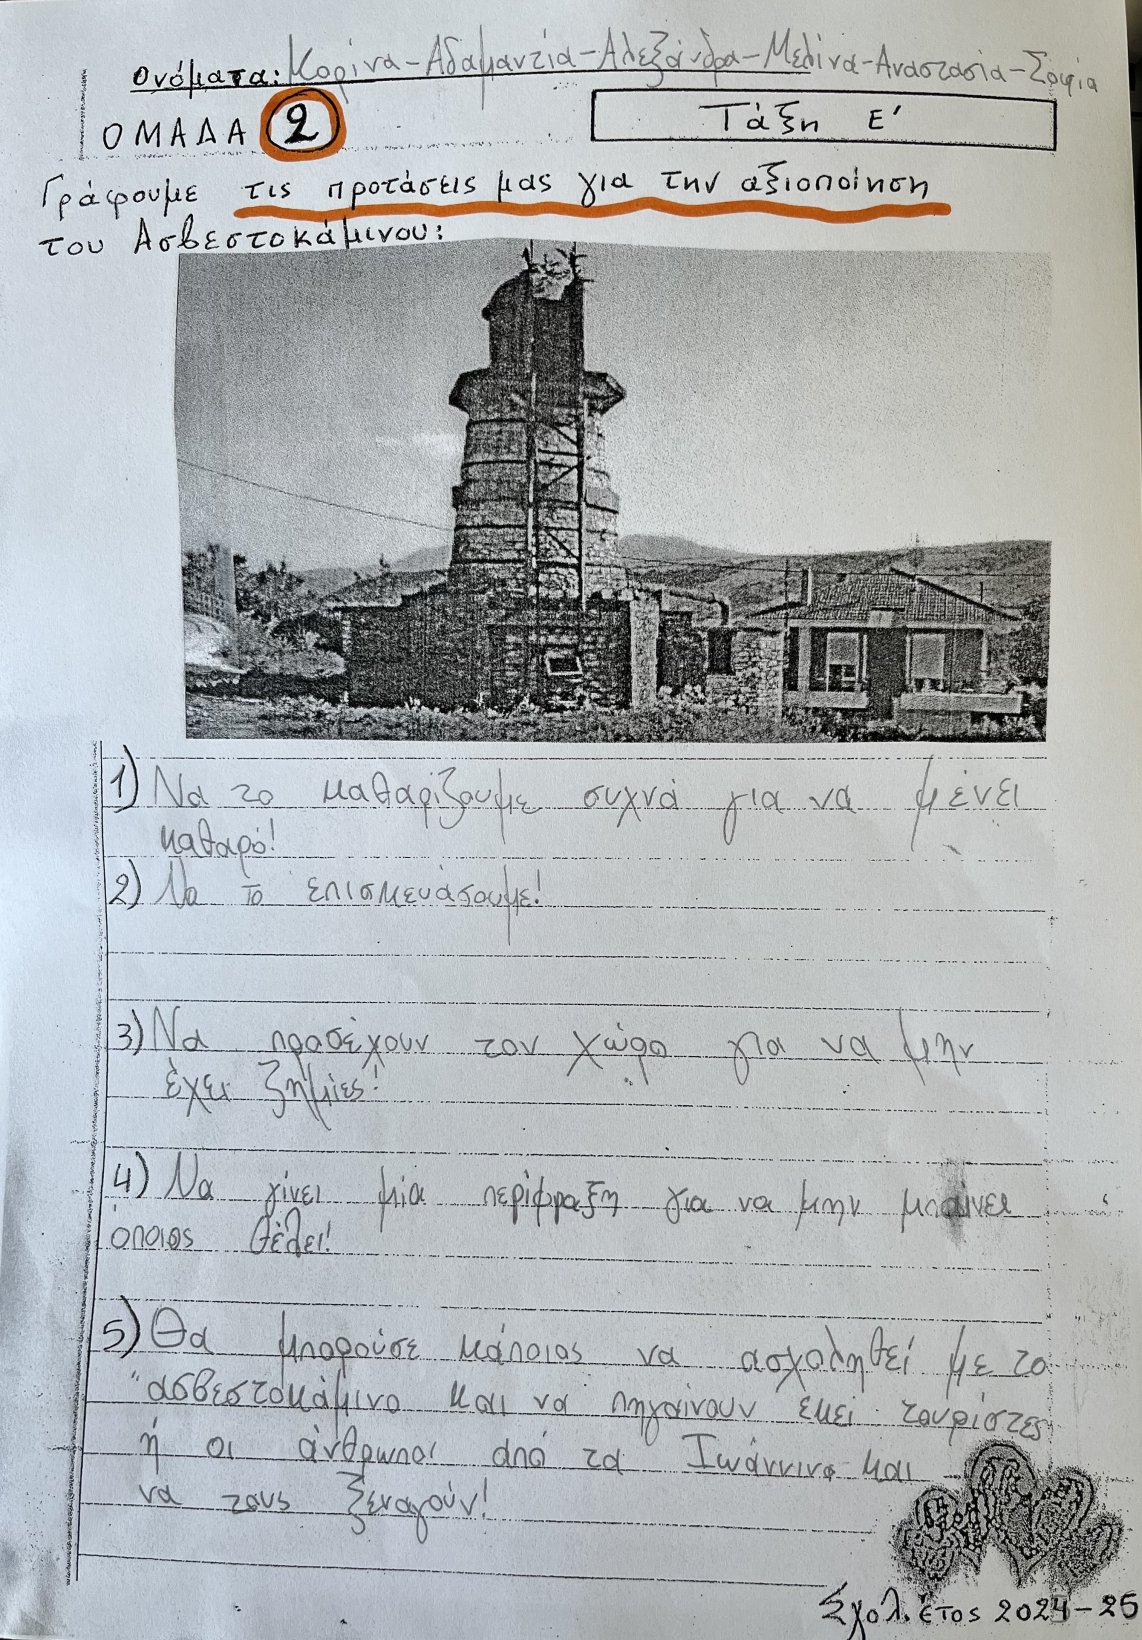 Ονόματα: Κορίνα-Αδαμαντία-Αλεξάνδρα-Μελίνα-Αναστασία-Σοφία
ΟΜΑΔΑ 2
Τάξη Ε'
Γράφουμε τις προτάσεις μας για την αξιοποίηση
του Ασβεστοκάμινου:
1) Να το καθαρίζουμε συχνά για να μένει
καθαρό!
2) Να το επισκευάσουμε!
3) Να προσέχουν τον χώρο για να μην
έχει ζημιές!
4) Να γίνει μία περίφραξη για να μην μπαίνει
όποιος θέλει!
5) Θα μπορούσε κάποιος να ασχοληθεί με το
"ασβεστοκάμινο και να πηγαίνουν εκεί τουρίστες
ή οι άνθρωποι από τα Ιωάννινα και
να τους ξεναγούν!
Σχολ. έτος 2024-25